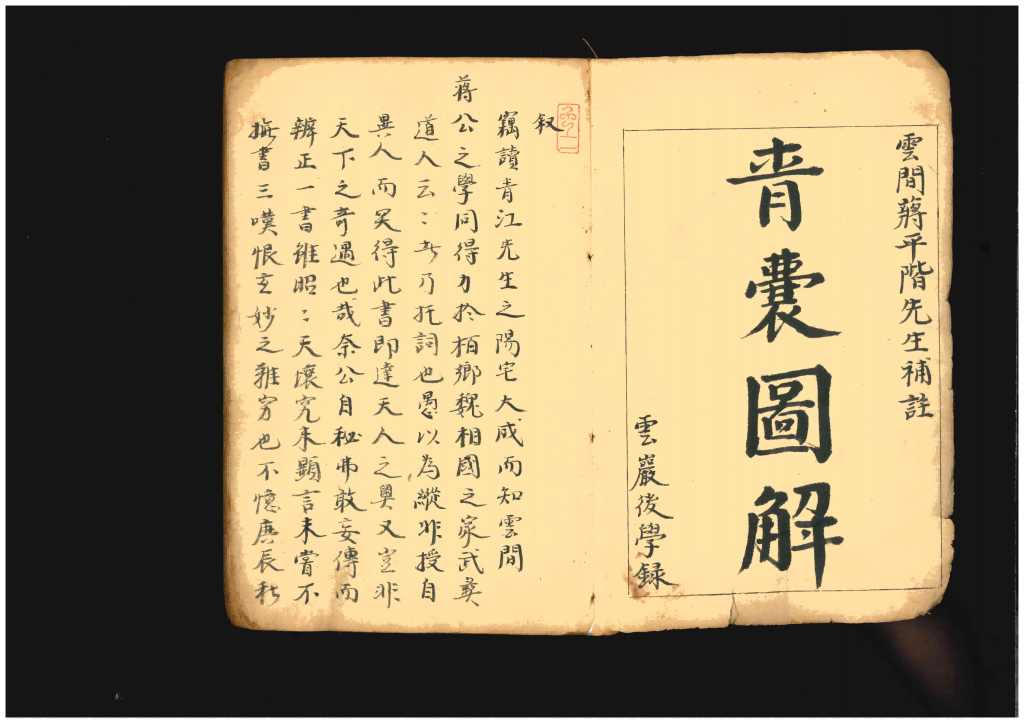 雲間蔣平階先生補註
青囊圖解
雲巖後學録
叙
竊讀青江先生之陽宅大成而知雲間
蔣公之學同得力於栢鄉魏相國之家武夷
道人云〻者乃托詞也愚以為縱非授自
異人而旣得此書即達天人之奧又豈非
天下之竒遇也哉奈公自秘弗敢妄傳而
辨正一書雖昭〻天壤究未顯言未嘗不
撫書三嘆恨玄妙之難窮也不憶庚辰秋